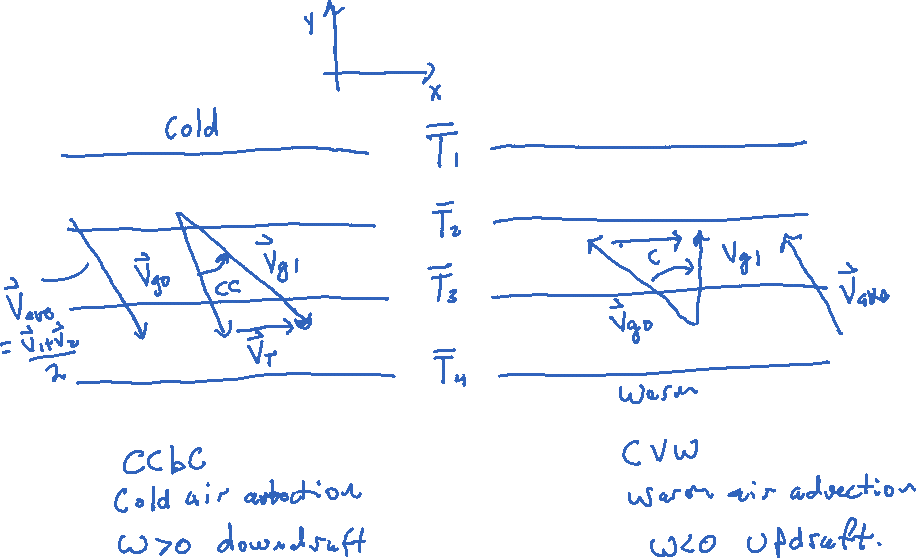 y
x
cold
T̄̄₁
T̄₂
T̄₃
T̄₄
V⃗g0
V⃗g1
CC
V⃗T
V⃗ave
= V⃗₁+V⃗₂
2
C
Vg1
V⃗g0
V⃗ave
Warm
CCbC
Cold air
ω>0 downdraft
CVW
Warm air advection
ω<0 updraft.